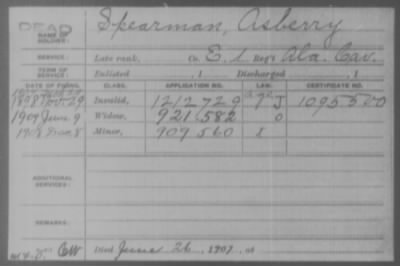 DEAD
NAME OF SOLDIER: Spearman, Asberry
SERVICE: Late rank, Co. E. 1 Reg't Ala. Cav.
TERM OF SERVICE: Enlisted , 1 Discharged , 1
DATE OF FILING. CLASS. APPLICATION NO. LAW. CERTIFICATE NO.
1898 Nov. 29 Invalid, 1212729 J 1095500
1907 June 9 Widow, 921582 O
Minor, 909560 I
ADDITIONAL SERVICES:
REMARKS:
CW Died June 26, 1907, at